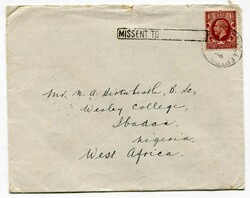 MISSENT TO
Mr. N. A. B. Sc.,
Wesley College,
Ibadan
Nigeria
West Africa.